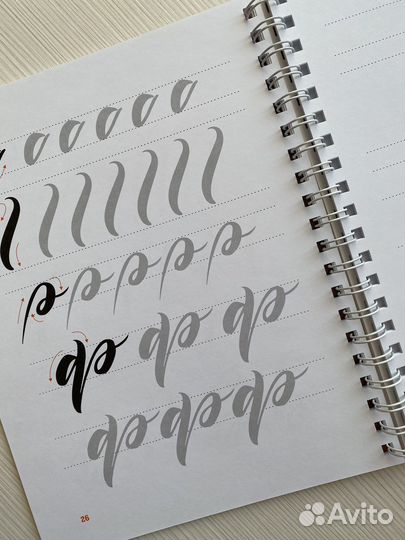 ф ф ф
ф ф ф
26
Avito